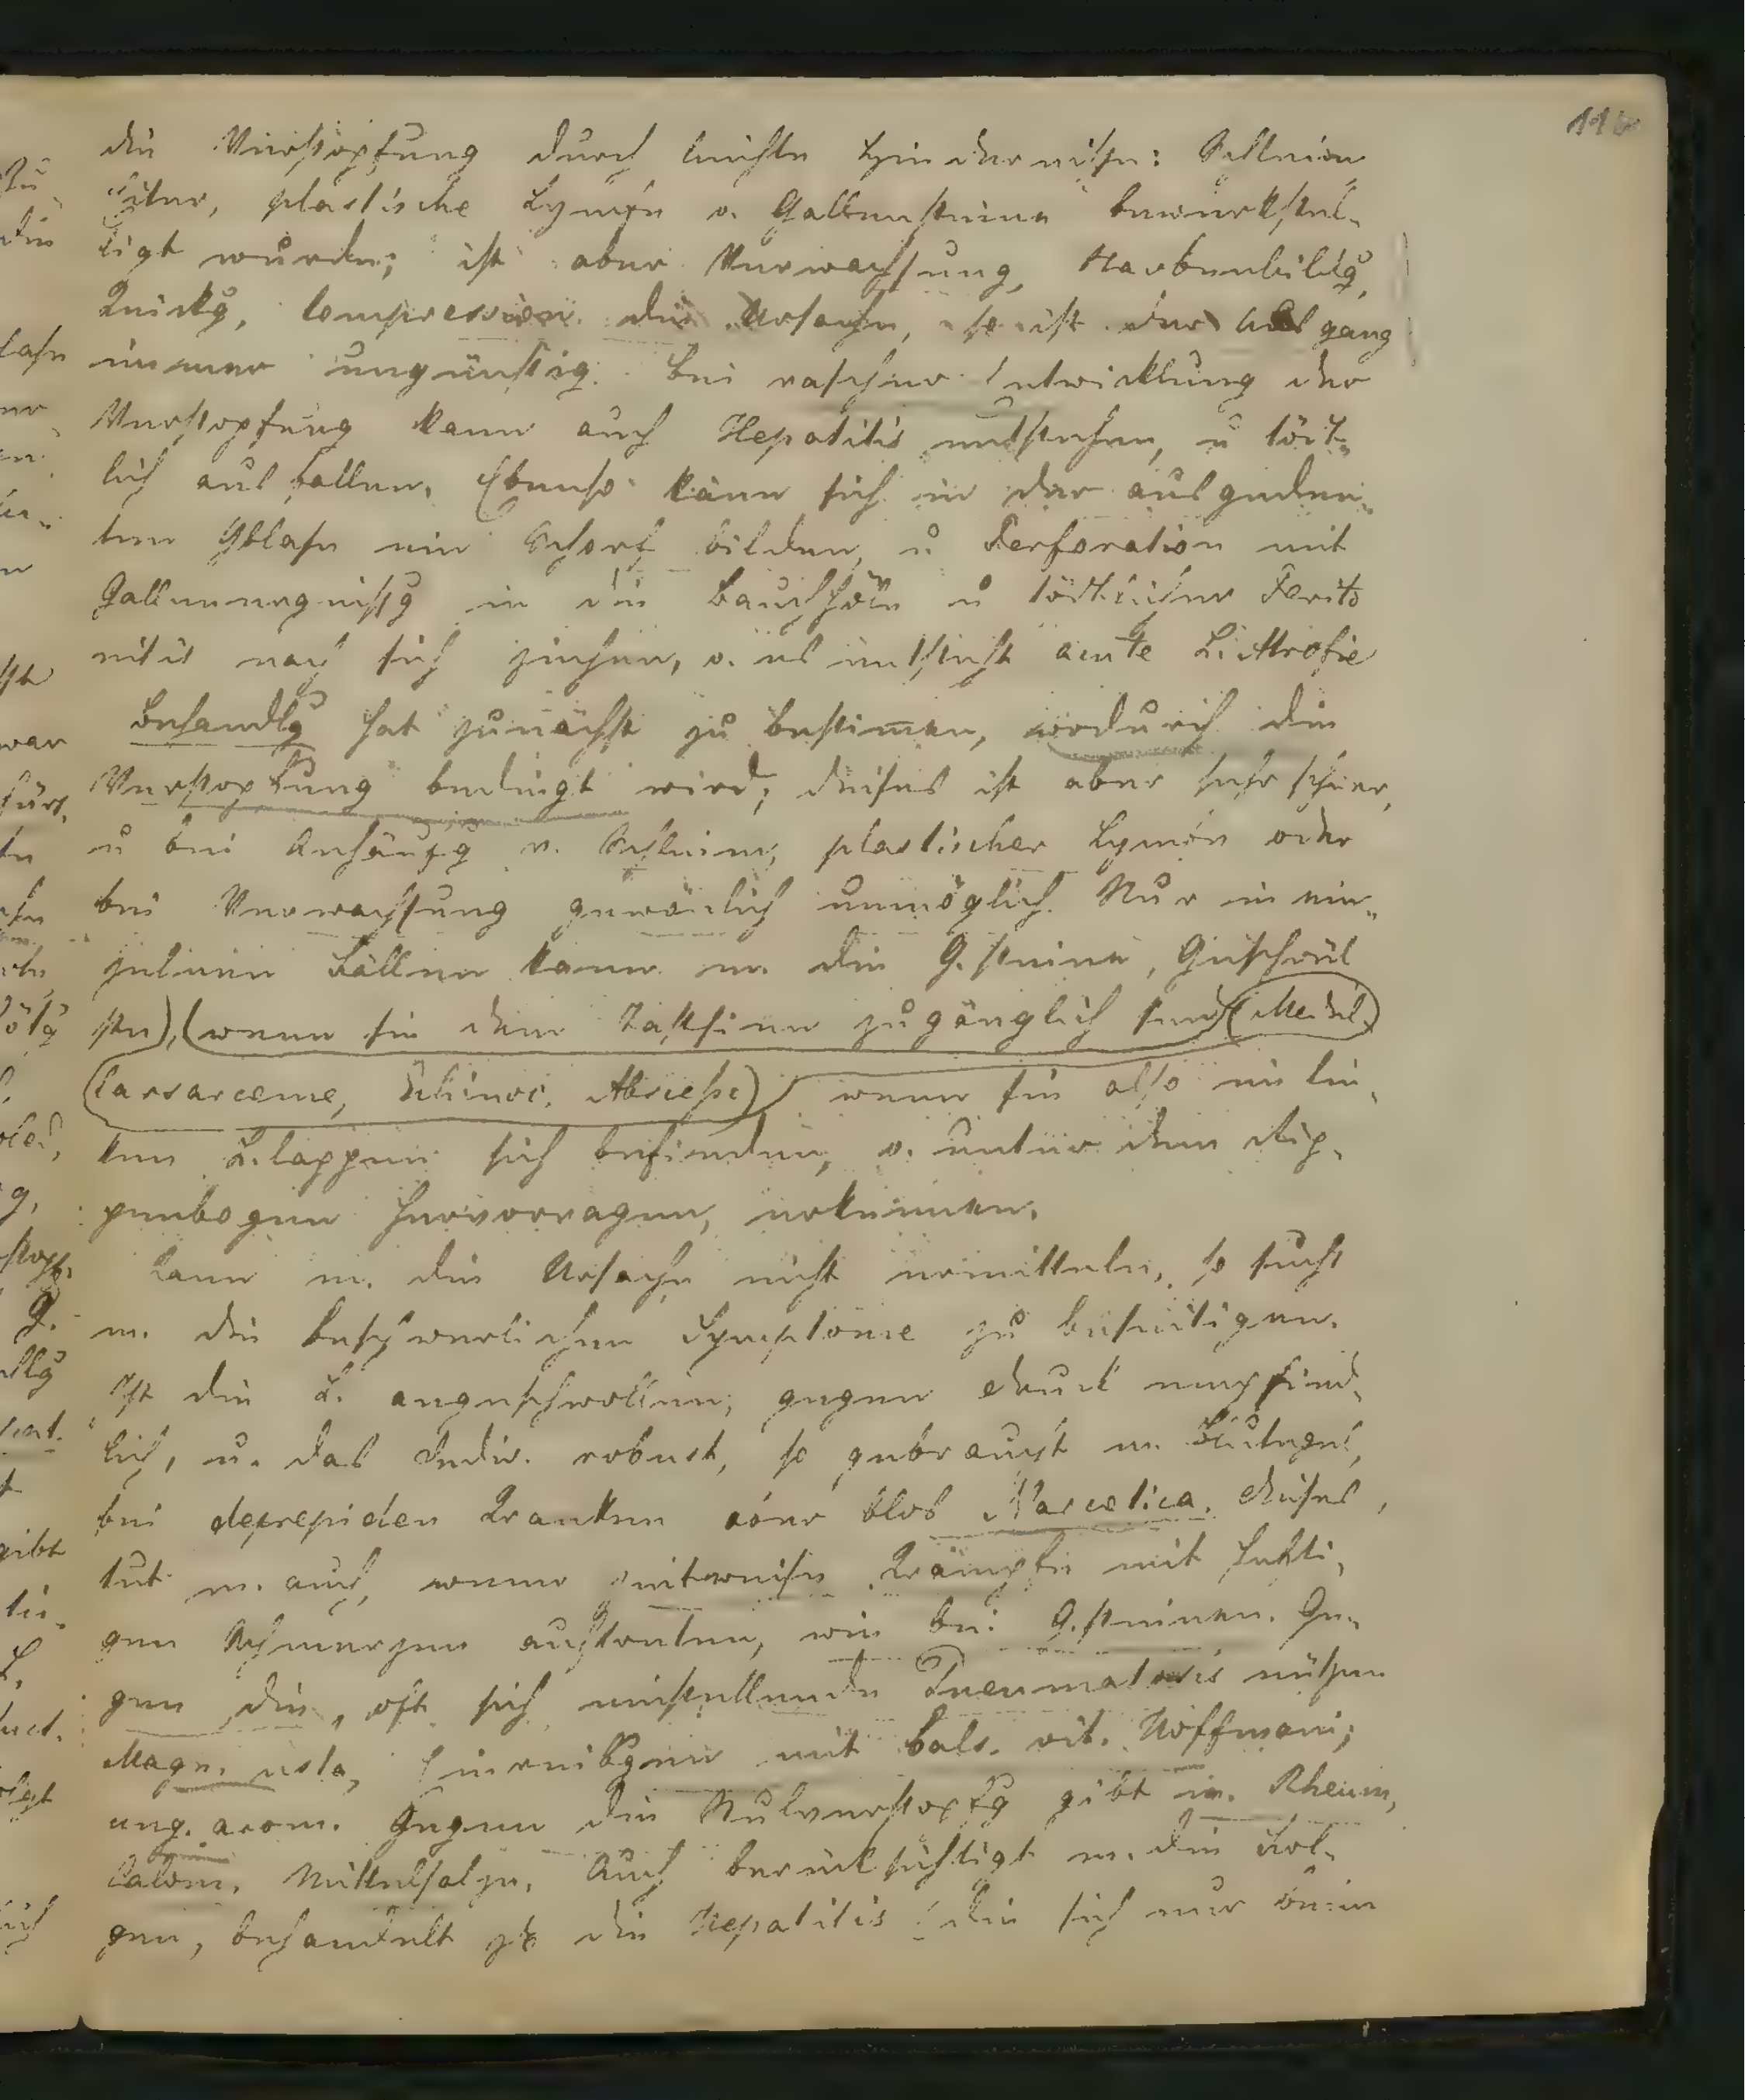 116
die Verstopfung durch leichte Hindernisse: Schleim
Eiter, plastische Lymfe o. Gallensteine bewerkstel-
ligt wurde; ist aber Verwachsung, Narbenbildg,
Knickg, Compression die Ursache, so ist der Ausgang
immer ungünstig. Bei rascher Entwicklung der
Verstopfung kann auch Hepatitis entstehen, u tödt-
lich ausfallen. Ebenso kann sich in der ausgedehn-
ten Gblase ein Schorf bilden, u Perforation mit
Gallenergiessg in die Bauchhöle u tödtlicher Perito
nitis nach sich ziehen, o. es entsteht acute L. Attrofie
Behandlg hat zunächst zu bestimen, wodurch die
Verstopfung bedingt wird; dieses ist aber sehr schwer,
u bei Anhäufg v. Schleim, plastischer Lymfe oder
bei Verwachsung gewönlich unmöglich. Nur in ein-
zelnen Fällen kann m. die G. steine, Geschwül
ste), (wenn sie dem Tastsinn zugänglich sind) (Medul.
Carsarcome, Echinoc. Abscesse) wenn sie also im lin-
ken L. lappen sich befinden, o. unter dem Rip-
penbogen hervorragen, erkennen.
Kann m. die Ursache nicht ermitteln, so sucht
m. die beschwerlichen Symptome zu beseitigen.
Ist die L. angeschwollen, gegen Druck empfind-
lich, u. das Indiv. robust, so gebraucht m. Blutegel,
bei decrepiden Kranken aber blos Narcotica. Dieses
tut m. auch, wenn zeitweise Krämpfe mit hefti-
gen Schmerzen auftreten, wie bei G. steinen. Ge-
gen die, oft sich einstellende Pneumatosis nützen
Magn. usta, Einreibgen mit Bals. vit. Hoffmani;
ung. arom. Gegen die Stulverstopfg gibt m. Rheum,
Calom. Mittelsalze. Auch berücksichtigt m. die Fol-
gen, behandelt zB die Hepatitis die sich nur